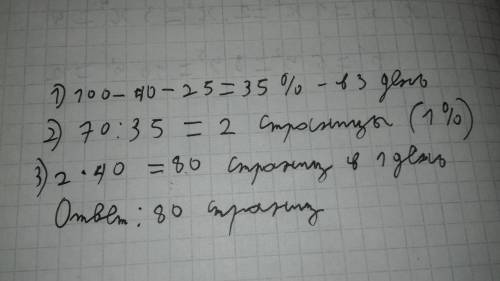 1) 100 - 40 - 25 = 35 % - в 3 день
2) 70 : 35 = 2 страницы (1%)
3) 2 · 40 = 80 страниц в 1 день
Ответ: 80 страниц